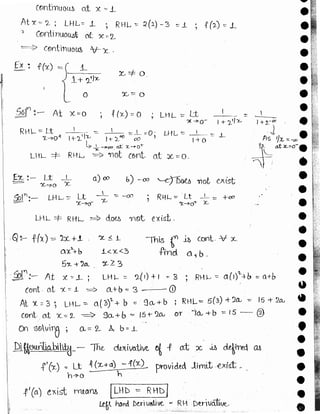 continuous at x = 1
At x = 2 ; LHL = 1 ; RHL = 2(2) - 3 = 1 ; f(2) = 1
Continuous at x = 2.
=> continuous ∀ x .
Ex : f(x) = { 1/(1 + 2^(1/x)) x ≠ 0
0 x = 0
Sol^n :- At x = 0 ; f(x) = 0 ; LHL = Lt x→0⁻ 1/(1 + 2^(1/x)) = 1/(1 + 2^-∞)
RHL = Lt x→0⁺ 1/(1 + 2^(1/x)) = 1/(1 + 2^∞) = 1/∞ = 0 ; LHL = 1/(1 + 0) = 1 As 1/x = -∞
at x = 0⁻
LHL ≠ RHL => not cont at x = 0.
Ex :- Lt x→0 1/x a) ∞ b) -∞ c) Does not exist
Sol^n :- LHL = Lt x→0⁻ 1/x = -∞ ; RHL = Lt x→0⁺ 1/x = +∞
LHL ≠ RHL => does not exist.
Q :- f(x) = 2x + 1 x ≤ 1 This f^n is cont ∀ x
ax² + b 1 < x < 3 find a, b.
5x + 2a x ≥ 3
Sol^n :- At x = 1 ; LHL = 2(1) + 1 = 3 ; RHL = a(1)² + b = a + b
cont at x = 1 => a + b = 3 — ①
At x = 3 ; LHL = a(3)² + b = 9a + b ; RHL = 5(3) + 2a = 15 + 2a
cont at x = 2 => 9a + b = 15 + 2a or 7a + b = 15 — ②
On solving ; a = 2 & b = 1.
Differentiability - The derivative of f at x is defined as
f'(x) = Lt h→0 (f(x+a) - f(x))/h provided limit exist.
f'(a) exist means LHD = RHD
Left hand Derivative = RH Derivative.